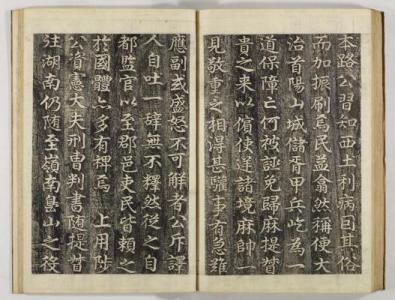 本路公習知西土利病因其俗
而加振刷焉民益翕然稱便大
治首陽山城儲胥甲兵屹為一
道保障亡何被誣免歸麻提督
貴之来以儐使逆諸境麻帥一
見敬重之相得甚驩事有急難
應副或盛怒不可解者公斥譯
人自吐一辭無不釋然從之自
都監官以至郡邑吏民皆賴之
於國體亦多有裨焉 上用陟
公資憲大夫刑曹判書随提督
往湖南仍随至嶺南島山之役